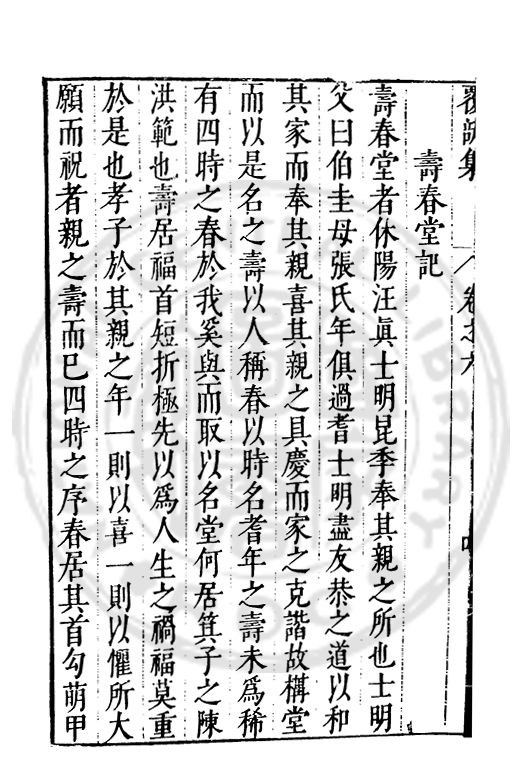 覆瓿集
卷之六
壽春堂記
壽春堂者休陽汪眞士明昆季奉其親之所也士明
父曰伯圭母張氏年俱過耆士明盡友恭之道以和
其家而奉其親喜其親之具慶而家之克諧故構堂
而以是名之壽以人稱春以時名耆年之壽未爲稀
有四時之春於我奚與而取以名堂何居箕子之陳
洪範也壽居福首短折極先以爲人生之禍福莫重
於是也孝子於其親之年一則以喜一則以懼所大
願而祝者親之壽而已四時之序春居其首勾萌甲